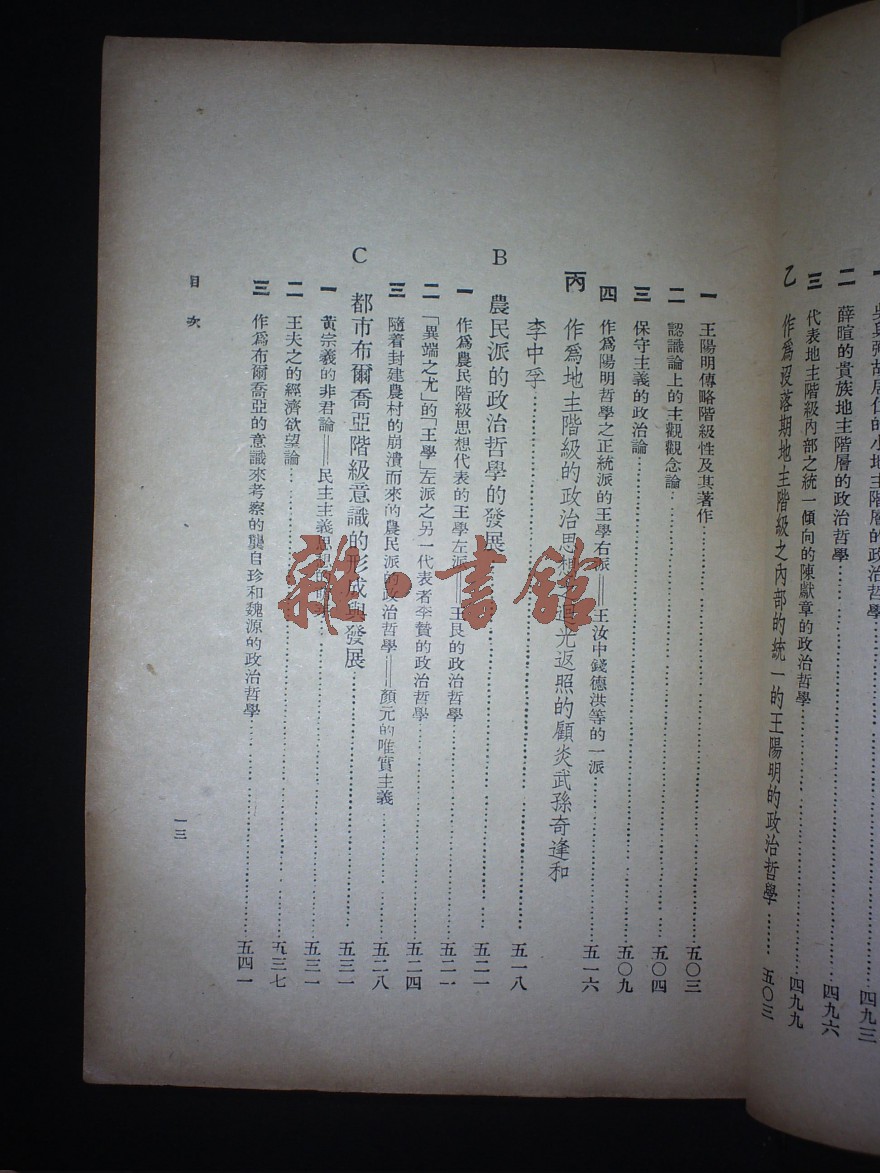 的小地主階層的政治哲學 四九三
二 薛瑄的貴族地主階層的政治哲學 四九六
三 代表地主階級內部之統一傾向的陳獻章的政治哲學 四九九
乙 作爲沒落期地主階級之內部的統一的王陽明的政治哲學 五〇三
一 王陽明傳略階級性及其著作 五〇三
二 認識論上的主觀觀念論 五〇四
三 保守主義的政治論 五〇九
四 作爲陽明哲學之正統派的王學右派——王汝中錢德洪等的一派 五一六
丙 作爲地主階級的政治思想之迴光返照的顧炎武孫奇逢和
李中孚 五一八
B 農民派的政治哲學的發展 五二一
一 作爲農民階級思想代表的王學左派——王艮的政治哲學 五二一
二 「異端之尤」的「王學」左派之另一代表者李贄的政治哲學 五二四
三 隨着封建農村的崩潰而來的農民派的政治哲學——顏元的唯實主義 五二八
C 都市布爾喬亞階級意識的形成與發展 五三一
一 黃宗羲的非君論——民主主義思想的 五三一
二 王夫之的經濟欲望論 五三七
三 作爲布爾喬亞的意識來考察的龔自珍和魏源的政治哲學 五四一
目次
一三
雜·書館